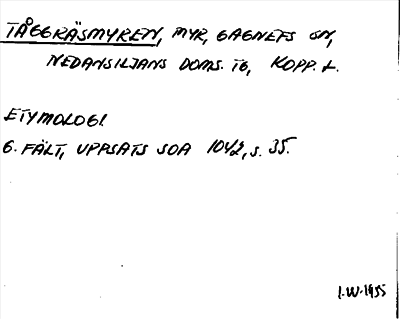 TÅGGRÄSMYREN, MYR, GAGNEFS SN,
NEDANSILJANS DOMS. TG, KOPP. L.
ETYMOLOGI
G. FÄLT, UPPSATS SOA 1042, S. 35.
I.W. 1955